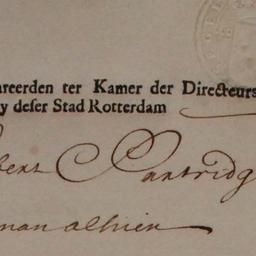 areerden ter Kamer der Directeurs
y deser Stad Rotterdam
bert Partridg
man alhier